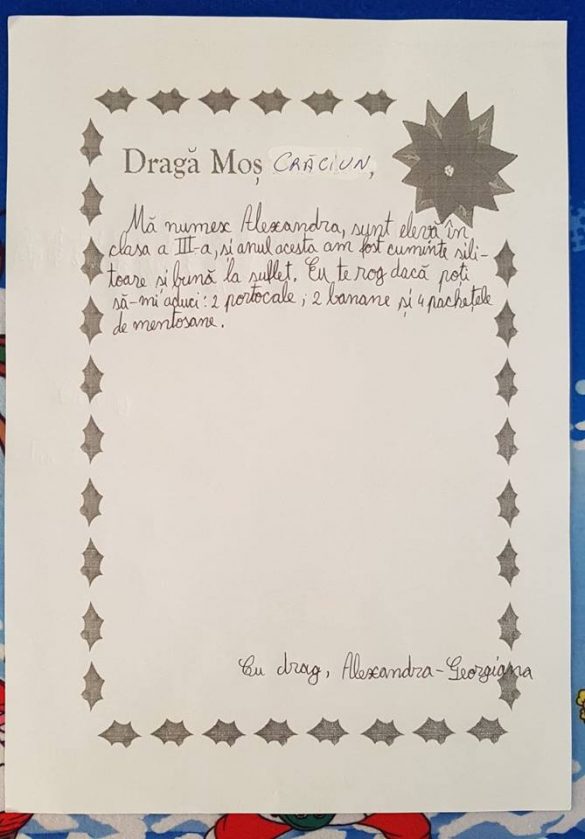 Dragă Moș CRĂCIUN,
Mă numesc Alexandra, sunt elevă în
clasa a III-a, și anul acesta am fost cuminte sili-
toare și bună la suflet. Eu te rog dacă poți
să-mi aduci: 2 portocale, 2 banane și 4 pachețele
de mentosane.
Cu drag, Alexandra-Georgiana